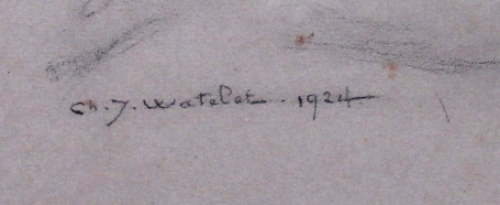 Ch. J. Watelet. 1924